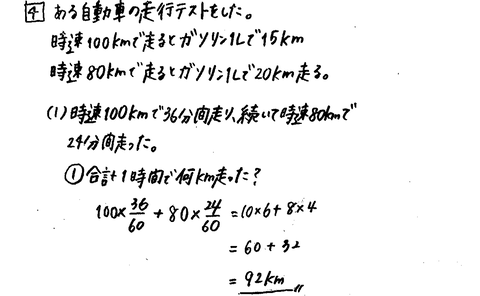 4 ある自動車の走行テストをした。
時速100kmで走るとガソリン1Lで15km
時速80kmで走るとガソリン1Lで20km走る。
(1)時速100kmで36分間走り、続いて時速80kmで
24分間走った。
①合計1時間で何km走った?
100×36/60+80×24/60=10×6+8×4
=60+32
=92km〃